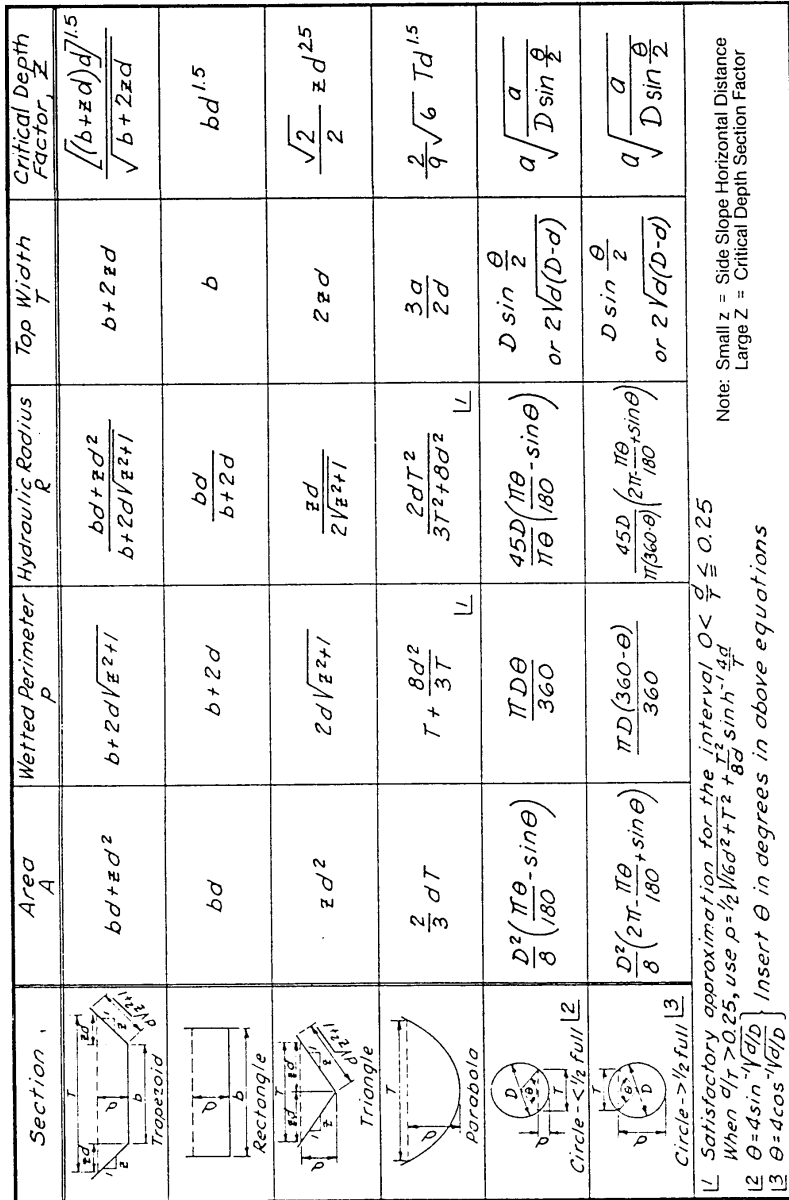 Section ,
Area A
Wetted Perimeter P
Hydraulic Radius R
Top Width T
Critical Depth Factor, Z
T
zd
zd
1
z
1
z
d√z²+1
d
b
Trapezoid
bd+zd²
b+2d√z²+1
bd+zd² / b+2d√z²+1
b+2zd
[(b+zd)d]^1.5 / √b+2zd
d
b
Rectangle
bd
b+2d
bd / b+2d
b
bd^1.5
T
zd
zd
1
z
1
z
d√z²+1
d
Triangle
zd²
2d√z²+1
zd / 2√z²+1
2zd
√2 / 2 zd^2.5
T
d
Parabola
2/3 dT
T + 8d² / 3T |1
2dT² / 3T²+8d² |1
3a / 2d
2/9 √6 Td^1.5
D
θ
d
T
Circle-<1/2 full |2
D²/8 (πθ/180 - sinθ)
πDθ / 360
45D/πθ (πθ/180 - sinθ)
D sin θ/2
or 2√d(D-d)
a√(a / D sin θ/2)
T
θ
d
D
Circle->1/2 full |3
D²/8 (2π - πθ/180 + sinθ)
πD(360-θ) / 360
45D / π(360-θ) (2π - πθ/180 + sinθ)
D sin θ/2
or 2√d(D-d)
a√(a / D sin θ/2)
|1 Satisfactory approximation for the interval 0< d/T ≦ 0.25
When d/T >0.25, use p=1/2√16d²+T² + T²/8d sinh⁻¹ 4d/T
|2 θ=4sin⁻¹√d/D } Insert θ in degrees in above equations
|3 θ=4cos⁻¹√d/D
Note: Small z = Side Slope Horizontal Distance
Large Z = Critical Depth Section Factor